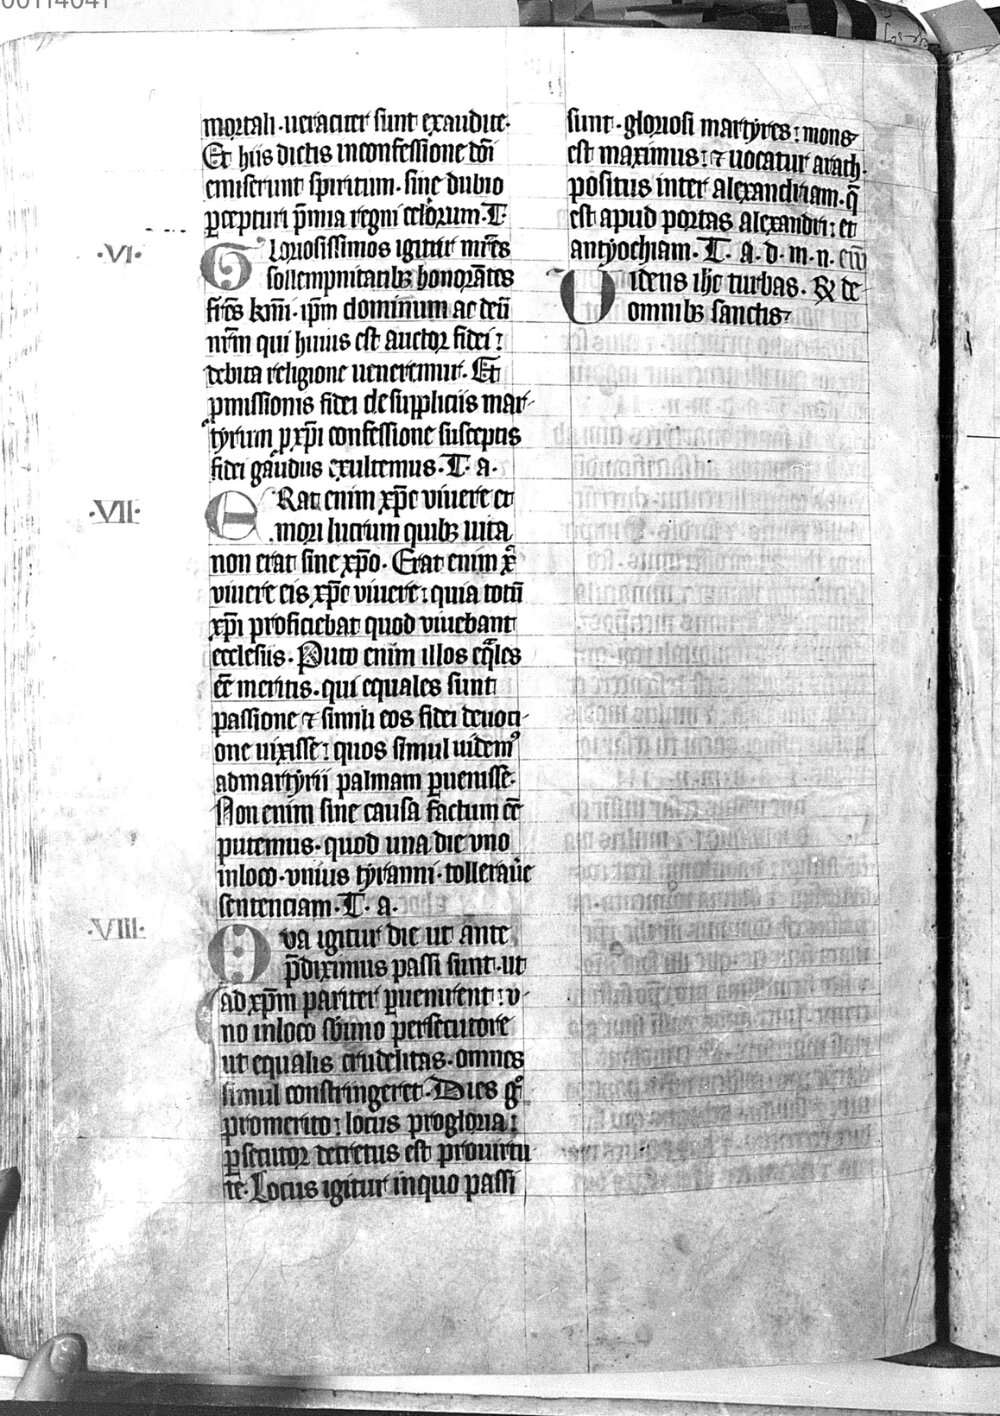 00114041
mortali·ueraciter sunt exaudite·
Et hiis dictis inconfessione dn̄i
emiserunt spiritum·sine dubio
p̄cepturi p̄mia regni celorum·T·
·VI·
Gloriosissimos igitur mr̄es
sollempnitatibꝫ honorātes
fr̄es km̄i·ip̄m dominum ac deū
nr̄m qui huius est auctor fidei:
debita religione ueneremur·Et
pmissionis fidei de suppliciis mar-
tyrum p xp̄i confessione susceptis
fidei gaudiis exultemus·T·a·
·VII·
ERat enim xp̄c viuere et
mori lucrum quibꝫ uita
non erat sine xp̄o·Erat enim xp̄
viuere eis xp̄c viuere:quia totū
xp̄i proficiebat quod viuebant
ecclesiis·Puto enim illos eq̄les
eē meritis·qui equales sunt
passione ⁊ simili eos fidei deuoti-
one uixisse:quos simul uidemꝰ
admartyrii palmam p̄uenisse·
Non enim sine causa factum eē
putemus·quod una die vno
inloco·vnius tyranni·tolleraūt
sentenciam·T·a·
·VIII·
Qva igitur die ut ante
p̄diximus passi sunt·ut
ad xp̄m pariter p̄uenirent:v-
no inloco sub uno persecutore
ut equalis crudelitas·omnes
simul constringeret·Dies gͦ
promerito:locus progloria:
p̄secutor detectus est prouirtu
te·Locus igitur inquo passi
sunt·gloriosi martyres:mons
est maximus:⁊ uocatur arath·
positus inter alexandriam·q̄
est apud portas alexandri:et
antyochiam·T·a·d·m·n·ew̄
Uidens ihc turbas·℞ de
omnibꝫ sanctis